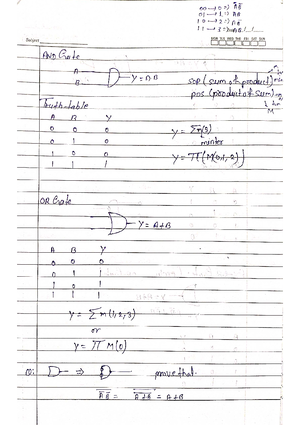 00 → 0 ⇒ A̅B̅
01 → 1 ⇒ A̅B
10 → 2 ⇒ AB̅
11 → 3 ⇒ AB
AND Gate
A
B
Y = AB
SOP (sum of product)
POS (product of sum)
M
Truth-table
A B Y
0 0 0
0 1 0
1 0 0
1 1 1
Y = Σm(3)
minterm
Y = π(M(0,1,2))
OR Gate
Y = A+B
A B Y
0 0 0
0 1 1
1 0 1
1 1 1
Y = Σm(1,2,3)
or
Y = π M(0)
⇒ prove that
= A+B